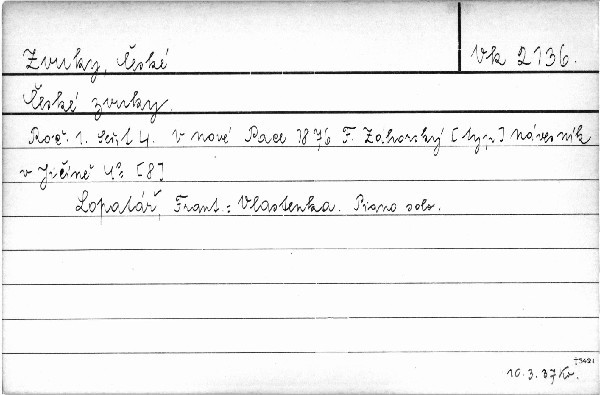 Zvuky, České
Vk 2136.
České zvuky.
Roč. 1. Seš. 4. V nové Pace 1876 F. Zahorský [typ.] Návesník
v Jičíně 4° [8]
Lopatář, Frant: Vlastenka. Piano solo.
10.3.37 Kv.